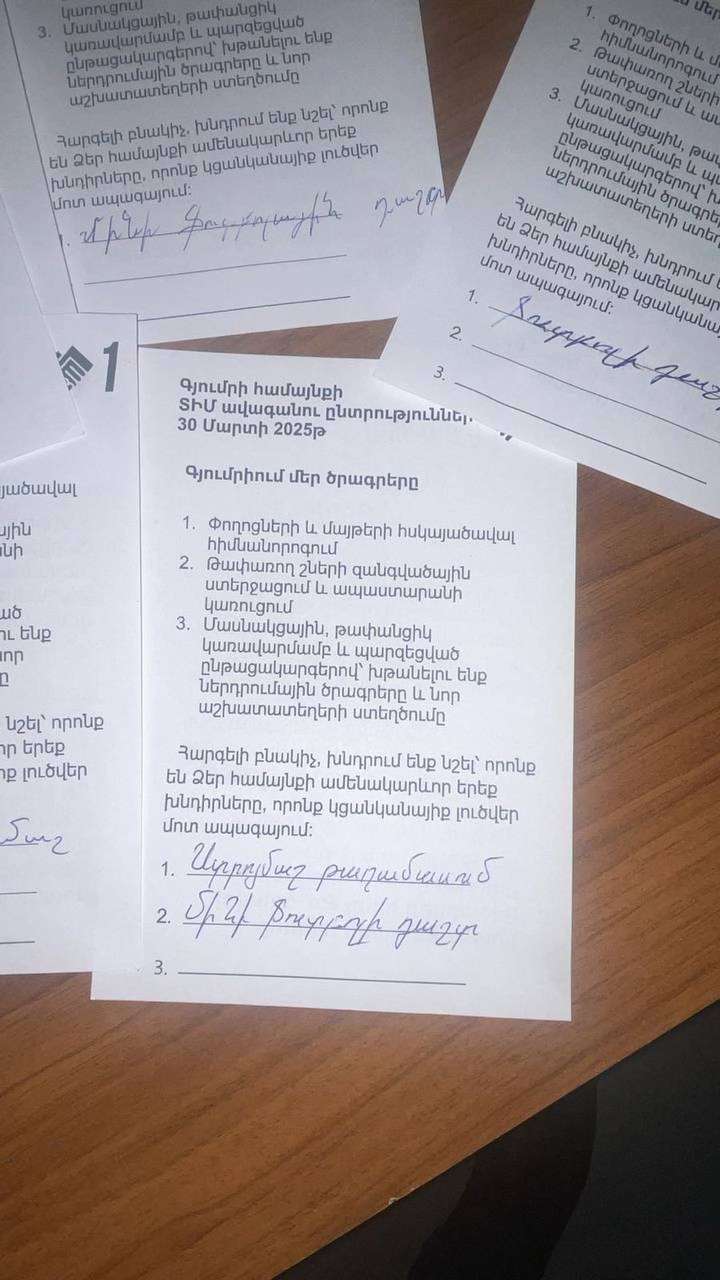 կառուցում
3. Մասնակցային, թափանցիկ
կառավարմամբ և պարզեցված
ընթացակարգերով՝ խթանելու ենք
ներդրումային ծրագրերը և նոր
աշխատատեղերի ստեղծումը
Հարգելի բնակիչ, խնդրում ենք նշել՝ որոնք
են Ձեր համայնքի ամենակարևոր երեք
խնդիրները, որոնք կցանկանայիք լուծվեր
մոտ ապագայում:
1. Մինի ֆուտբոլային դաշտ
1. Փողոցների և մ
հիմնանորոգում
2. Թափառող շների
ստերջացում և ապ
կառուցում
3. Մասնակցային, թա
կառավարմամբ և պ
ընթացակարգերով՝ խ
ներդրումային ծրագրեր
աշխատատեղերի ստեղ
Հարգելի բնակիչ, խնդրում
են Ձեր համայնքի ամենակար
խնդիրները, որոնք կցանկանա
մոտ ապագայում:
1. Ֆուտբոլի դաշ
2.
3.
1
յածավալ
ային
անի
ած
ու ենք
նոր
ը
նշել՝ որոնք
որ երեք
իք լուծվեր
Գյումրի համայնքի
ՏԻՄ ավագանու ընտրություններ
30 Մարտի 2025թ
Գյումրիում մեր ծրագրերը
1. Փողոցների և մայթերի հսկայածավալ
հիմնանորոգում
2. Թափառող շների զանգվածային
ստերջացում և ապաստարանի
կառուցում
3. Մասնակցային, թափանցիկ
կառավարմամբ և պարզեցված
ընթացակարգերով՝ խթանելու ենք
ներդրումային ծրագրերը և նոր
աշխատատեղերի ստեղծումը
Հարգելի բնակիչ, խնդրում ենք նշել՝ որոնք
են Ձեր համայնքի ամենակարևոր երեք
խնդիրները, որոնք կցանկանայիք լուծվեր
մոտ ապագայում:
1. Ավտրոյմաշ թաղամասում
2. Մինի ֆուտբոլի դաշտ
3.